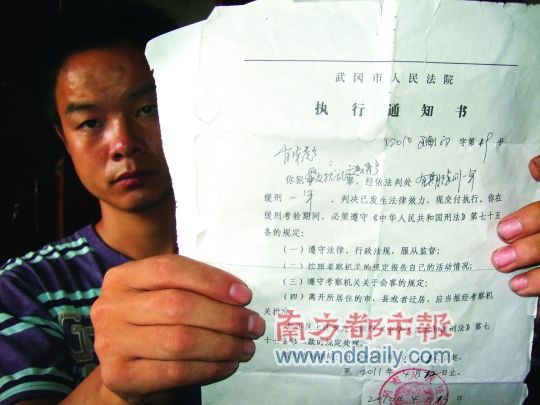 武冈市人民法院
执行通知书
(2010) 字第 号
你犯 罪，经依法判处有期徒刑一年
缓刑一年。判决已发生法律效力，现交付执行。你在
缓刑考验期间，必须遵守《中华人民共和国刑法》第七十五
条的规定：
(一) 遵守法律、行政法规，服从监督；
(二) 按照考察机关的规定报告自己的活动情况；
(三) 遵守考察机关关于会客的规定；
(四) 离开所居住的市、县或者迁居，应当报经考察机
关批
南方都市报
刑法》第七
十 款的规定处理
www.nddaily.com 起，
至 2011年4月12日止。